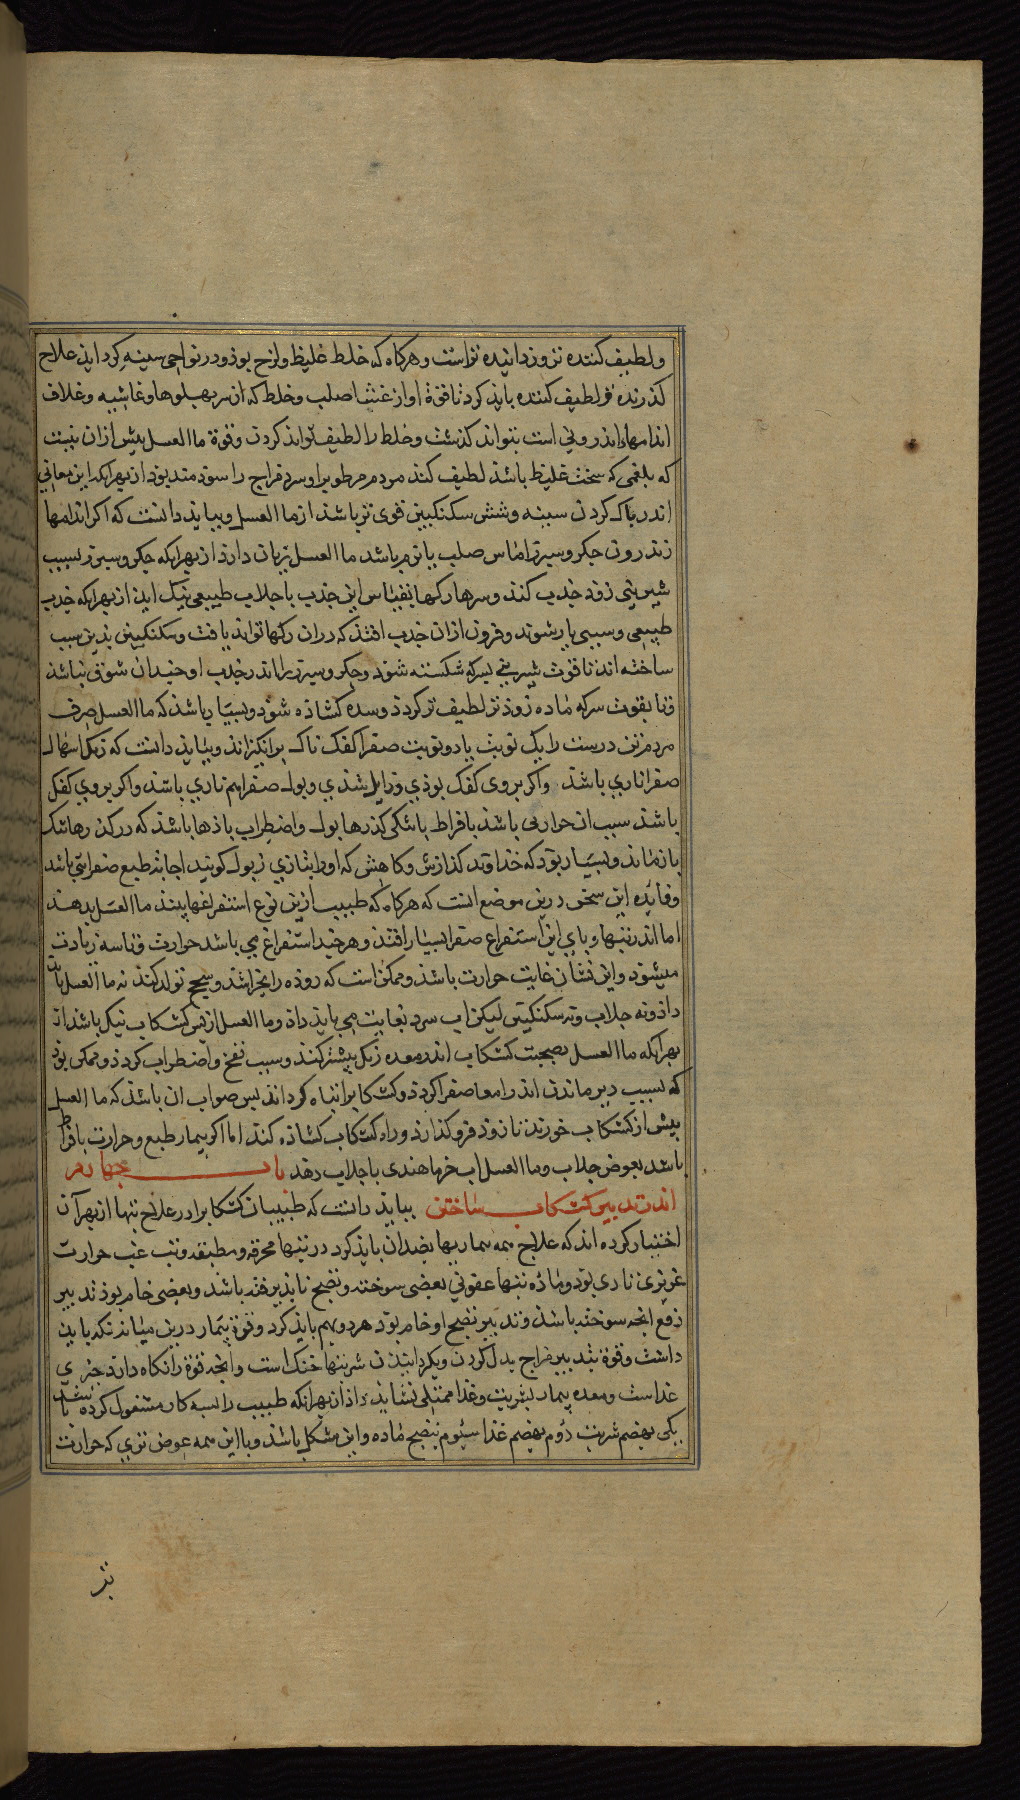 ولطیف کننده تر و زداینده تر است و هرگاه که خلط غلیظ و لزج بوذ و در نواحی سینه کرد اید علاج
کذرنده و لطیف کننده بایذ کرد تا قوة او از غشا صلب و خلط که از سر بهلوها و غاشیه و غلاف
اندامهاء اندرونی است بتواند کذشت و خلط را لطیف تواند کردن و قوة ما العسل بیش از ان نیست
که بلغمی که سخت غلیظ باشذ لطیف کند مردم مرطوب را و سرد مزاج را سودمند بوذ از بهر انکه این معانی
اندر پاک کردن سینه و شش سکنکبین قوی تر باشذ از ما العسل و بباید دانست که اکر اندامها
اندرون جکر و سپرز اماس صلب یا نرم باشد ما العسل زیان دارذ از بهر انکه جکر و سپرز بسبب
شیرینی زوذ جذب کنند و سرهاء رکها این جذب با جلاب طبیعی نیک اید از بهر انکه جذب
طبیعی و سببی یار شوند و فزون از ان جذب افتذ که در ان رکها تواند یافت و سکنکبین بدین سبب
ساخته اند تا قوت شیرینی بسرکه شکسته شوذ و جکر و سپرز را اندر جذب او جندان شوقی نباشذ
و تا بقوت سرکه ماده زوذتر لطیف تر کردذ و سده کشاذه شوذ و بسیار باشذ که ما العسل صرف
مردم تن درست را یک نوبت یا دو نوبت صفرا کفک ناک برانکیزاند و بباید دانست که رنک اسهال
صفرا ناری باشذ و اکر بروی کفک بوذی و زایل شذی و بول صفرا هم ناری باشذ و اکر بروی کفک
باشذ سبب ان حرارتی باشذ بافراط یا تنکی کذرها بول و اضطراب باذها باشذ که در کذرها تنک
باز ماند و بسیار بوذ که خذاوند کذازش و کاهش که او را بتازی ذبول کویند اجابت طبع صفرایی باشد
و فایده این سخن درین موضع انست که هرکاه که طبیب ازین نوع استفراغها بیند ما العسل بدهد
اما اندر تبها وبایی این استفراغ صفرا بسیار افتذ و هر جند استفراغ می باشد حرارت و تاسه زیادت
میشود و این نشان غایت حرارت باشذ و ممکن است که روذه را بخراشد و سحج تولد کند نه ما العسل باید
داذ و نه جلاب و نه سکنکبین لیکن اب سرد بغایت می باید داذ و ما العسل از پس کشکاب نیک باشد از
بهر انکه ما العسل بصحبت کشکاب اندر معده درنک بیشتر کند و سبب نفخ و اضطراب کردذ و ممکن بوذ
که بسبب دیر ماندن اندر امعا صفرا کردذ و کشکاب را تباه کرداند پس صواب ان باشذ که ما العسل
پیش از کشکاب خورند تا زوذ فرو کذارذ و راه کشکاب کشاذه کند اما اکر بیمار طبع و حرارت بافراط
باشد بعوض جلاب و ما العسل اب خرما هندی با جلاب دهد باب چهارم
اندر تدبیر کشکاب ساختن بباید دانست که طبیبان کشکاب را در علاج تبها از بهر آن
اختیار کرده اند که علاج همه بیماریها بضد ان باید کرد در تبها محرقه و مطبقه و تب غب حرارت
غریزی ناری بوذ و ماده تبها عفونی بعضی سوخته و نضج ناپذیرفته باشذ و بعضی خام بوذ تدبیر
دفع انجه سوخته باشذ و تدبیر نضج او خام بوذ هر دو بهم باید کرد و قوة بیمار درین میان نکه باید
داشت و قوة بتدبیر مزاج بدل کردن شربتها خنک است و انجه قوة را نکاه دارد جیزی
غذاست و معده بیمار بشربت و غذا ممتلی نشاید داذ از بهر انکه طبیب را بسه کار مشغول کرده باشد
یکی بهضم شربت دوم بهضم غذا سیوم بنضج ماده و این مشکل باشذ و با این همه عوض تری که حرارت
تب